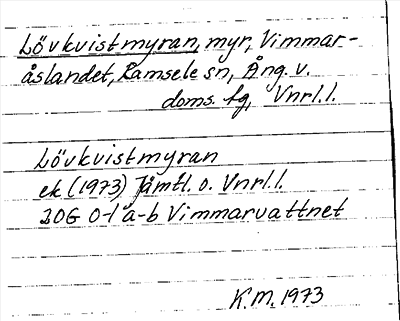 Lövkvistmyran, myr, Vimmar-
åslandet, Ramsele sn, Ång. v.
doms. fg, Vnrl.l.
Lövkvistmyran
ek (1973) Jämtl. o. Vnrl.l.
20G 0-1 a-b Vimmarvattnet
K.M. 1973